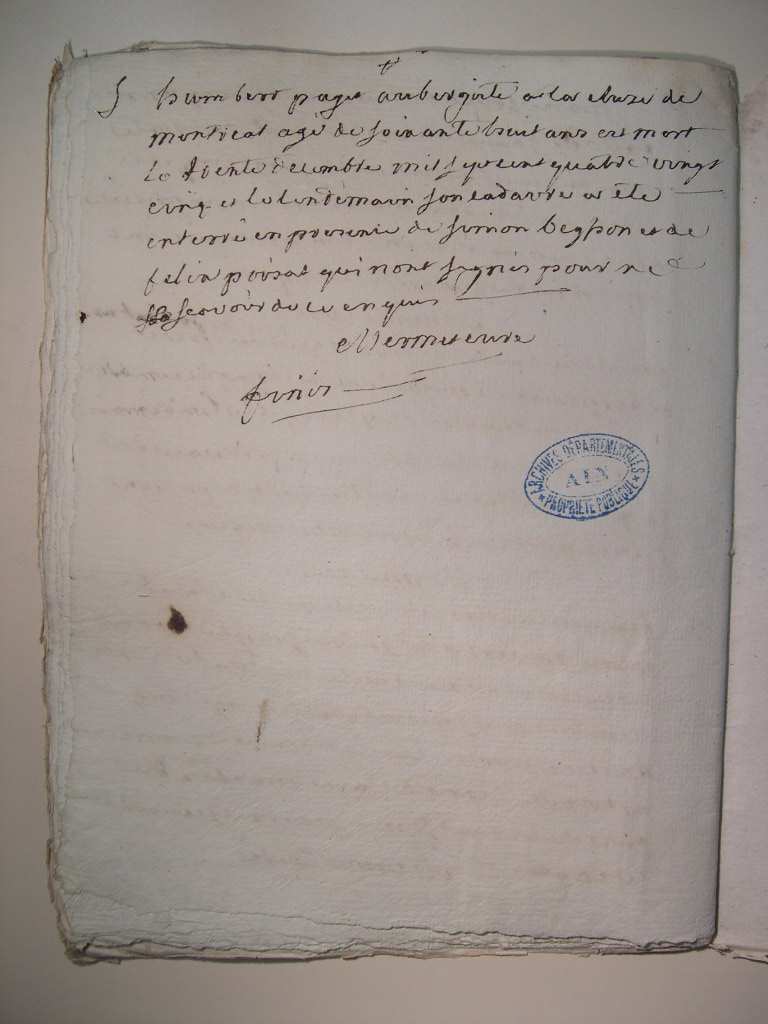 S humbert paget aubergiste a la cluse de
montreal agé de soixante huit ans est mort
le trente decembre mil sept cent quatre vingt
cinq et le lendemain son cadavre a été
enterré en presence de simon et de
felix poisat qui n'ont signés pour ne
scavoir de ce enquis
Mermet curé
finis
ARCHIVES DÉPARTEMENTALES
AIN
PROPRIÉTÉ PUBLIQUE